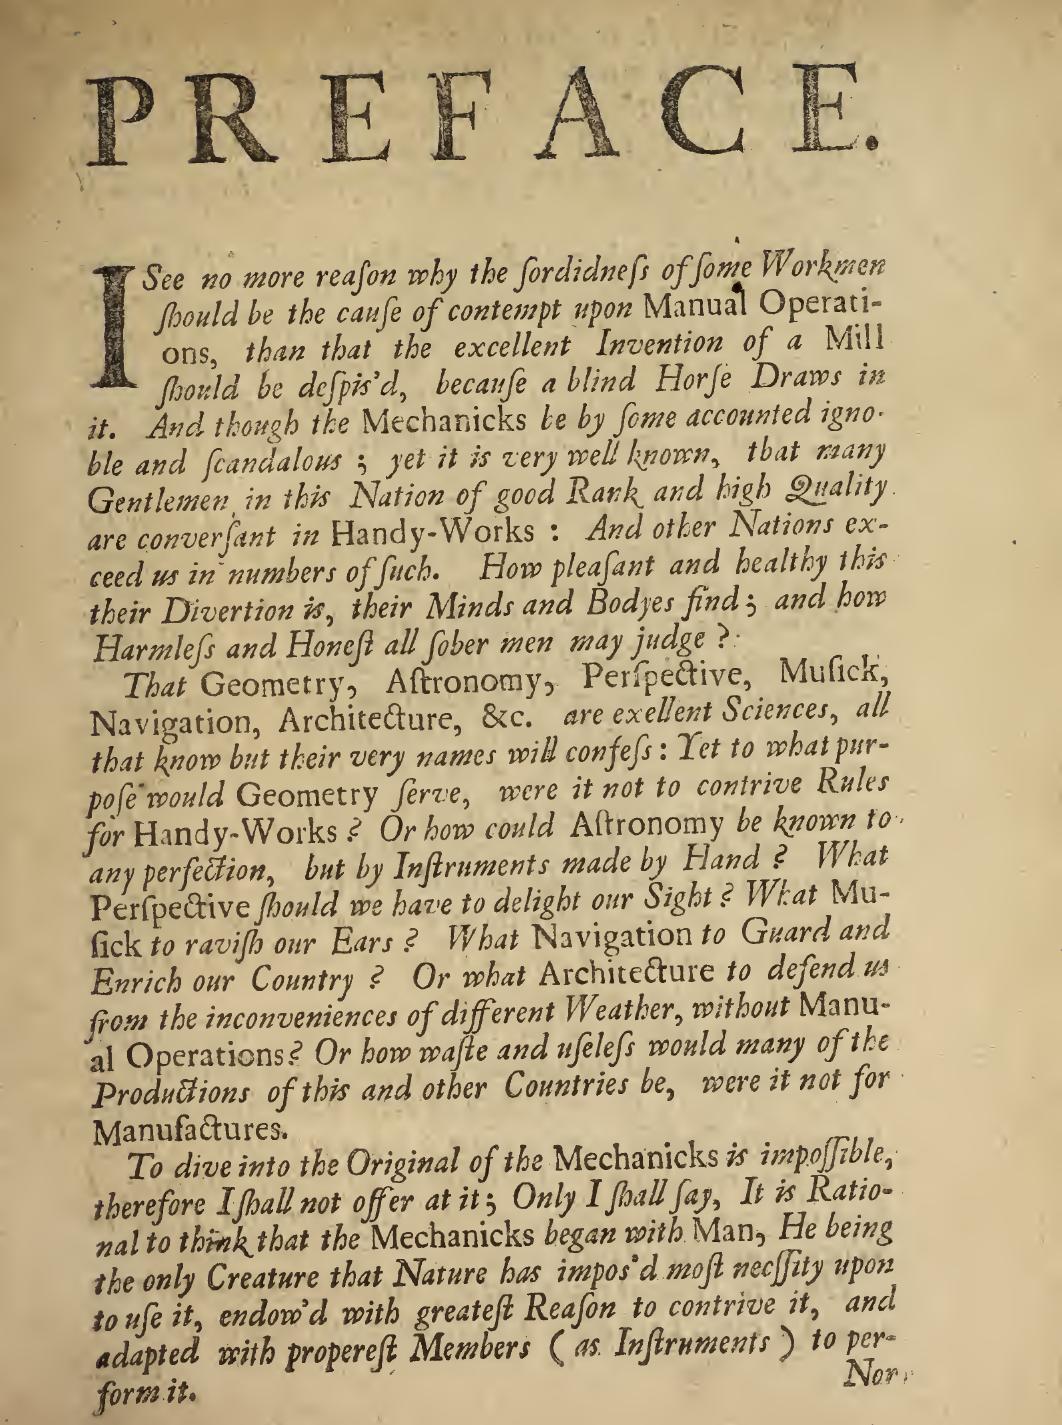 PREFACE.
I See no more reaſon why the ſordidneſs of ſome Workmen
ſhould be the cauſe of contempt upon Manual Operati-
ons, than that the excellent Invention of a Mill
ſhould be deſpis'd, becauſe a blind Horſe Draws in
it. And though the Mechanicks be by ſome accounted igno-
ble and ſcandalous ; yet it is very well known, that many
Gentlemen in this Nation of good Rank and high Quality
are converſant in Handy-Works : And other Nations ex-
ceed us in numbers of ſuch. How pleaſant and healthy this
their Divertion is, their Minds and Bodyes find ; and how
Harmleſs and Honeſt all ſober men may judge ?
That Geometry, Aſtronomy, Perſpective, Muſick,
Navigation, Architecture, &c. are exellent Sciences, all
that know but their very names will confeſs : Yet to what pur-
poſe would Geometry ſerve, were it not to contrive Rules
for Handy-Works ? Or how could Aſtronomy be known to
any perfection, but by Inſtruments made by Hand ? What
Perſpective ſhould we have to delight our Sight ? What Mu-
ſick to raviſh our Ears ? What Navigation to Guard and
Enrich our Country ? Or what Architecture to defend us
from the inconveniences of different Weather, without Manu-
al Operations ? Or how waſte and uſeleſs would many of the
Productions of this and other Countries be, were it not for
Manufactures.
To dive into the Original of the Mechanicks is impoſſible,
therefore I ſhall not offer at it ; Only I ſhall ſay, It is Ratio-
nal to think that the Mechanicks began with Man, He being
the only Creature that Nature has impos'd moſt necſſity upon
to uſe it, endow'd with greateſt Reaſon to contrive it, and
adapted with propereſt Members ( as Inſtruments ) to per-
form it.
Nor